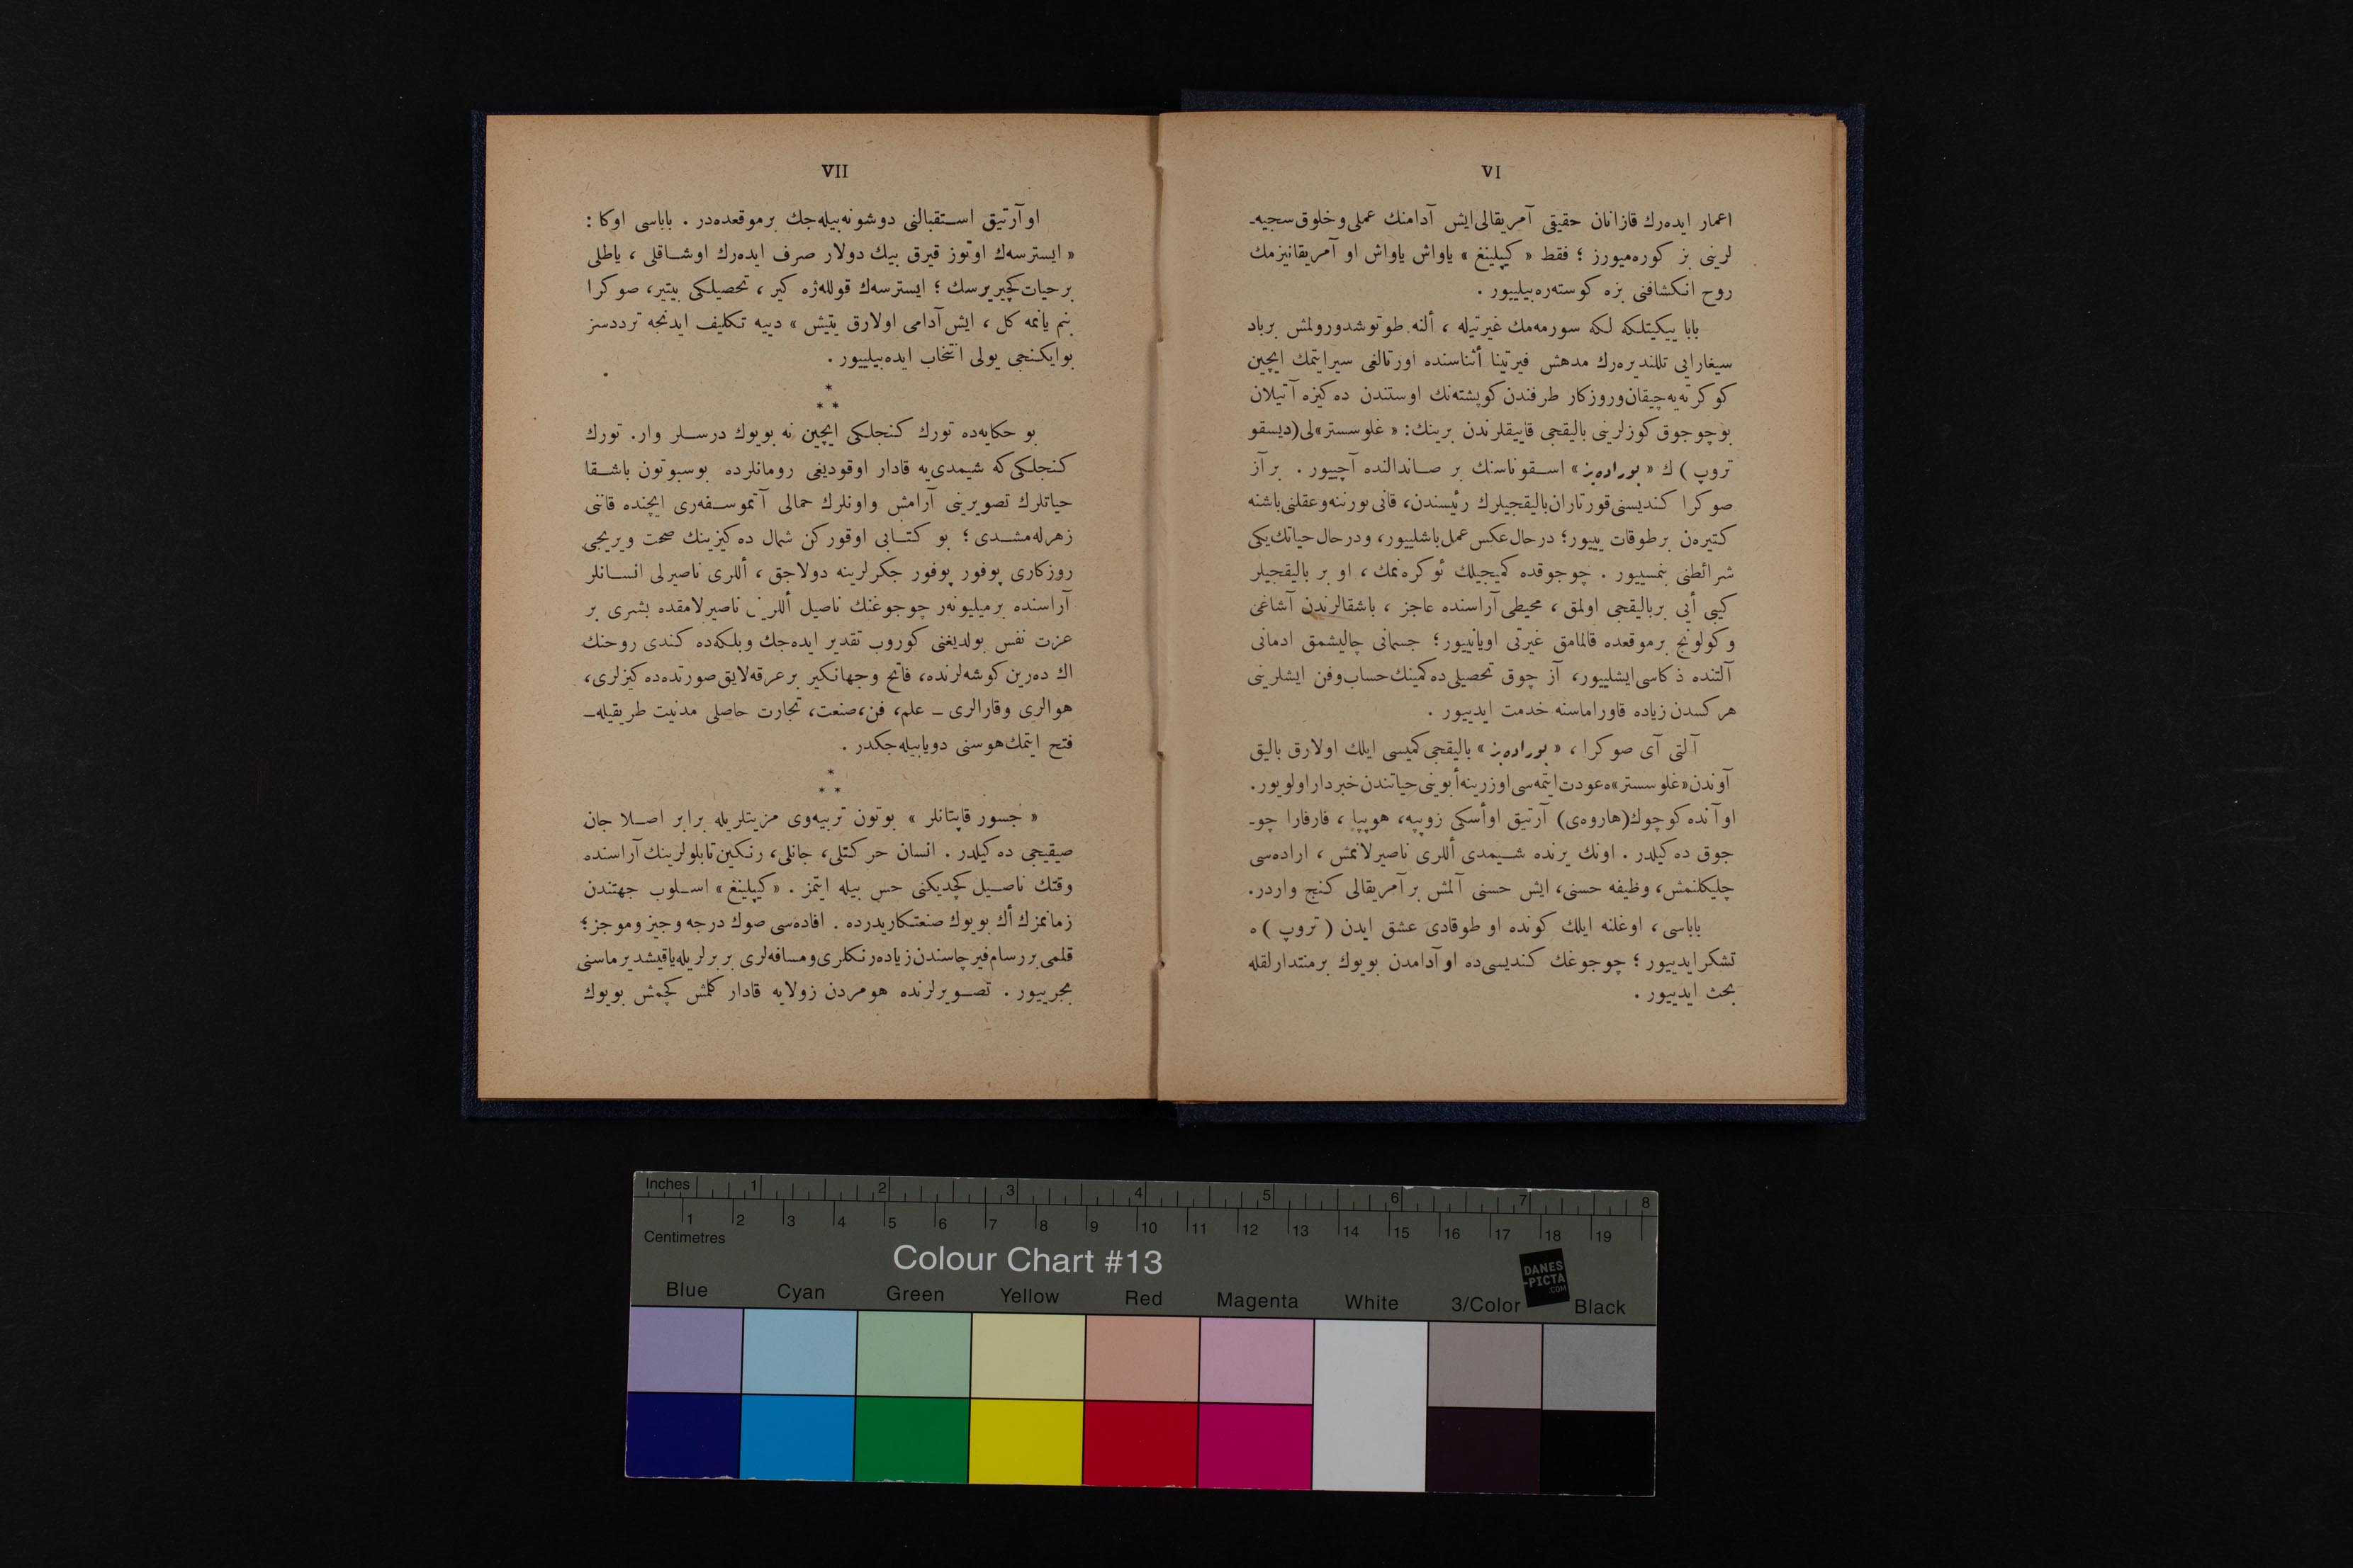 VI
اعمار ایده‌رك قازانان حقیقی آمریقالی ایش آدامنك عملی و خلوق سجیه‌ـ
لرینی بز كوره‌میورز ؛ فقط « كیپلینغ » یاواش یاواش او آمریقانیزمك
روح انكشافنی بزه كوستره‌بیلییور .
بابا ییكیتلكه لكه سورمه‌مك غیرتیله ، ألنه طوتوشدورولمش برباد
سیغارایی تللندیره‌رك مدهش فیرتینا أثناسنده اورتالغی سیرایتمك ایچین
كوكرته‌یه‌چیقان‌وروزكار طرفندن كوپشته‌نك اوستندن ده‌كیزه آتیلان
بوچوجوق كوزلرینی بالیقجی قاییقلرندن برینك: « غلوسستر»لی(دیسقو
تروپ ) ك « بوراده‌یز » اسـقوناسنك بر صـاندالنده آچییور . بر آز
صوكرا كندیسنی‌قورتاران‌بالیقجیلرك رئیسندن، قانی بورننه‌وعقلنی‌باشنه
كتیره‌ن برطوقات یییور؛ درحال‌عكس‌عمل‌باشلییور، ودرحال‌حیاتك‌یكی
شرائطنی بنمسییور . چوجوقده كمیجیلك ئوكره‌نمك ، او بر بالیقجیلر
كیبی أیی بربالیقجی اولمق ، محیطی آراسنده عاجز ، باشقالرندن آشاغی
وكولونج برموقعده قالمامق غیرتی اویانییور؛ جسمانی چالیشمق ادمانی
آلتنده ذكاسی‌ایشلییور، آز چوق تحصیلی‌ده كمینك‌حساب‌وفن ایشلرینی
هركسدن زیاده قاوراماسنه خدمت ایدییور .
آلتی آی صوكرا ، « بوراده‌یز » بالیقجی‌كمیسی ایلك اولارق بالیق
آوندن«غلوسستر»ه‌عودت‌ایتمه‌سی‌اوزرینه‌أبوینی‌حیاتندن‌خبرداراولویور.
اوآنده كوچوك(هاروه‌ی) آرتیق اوأسكی زوپپه، هوپپا ، فارفارا چو-
جوق ده‌كیلدر . اونك یرنده شـیمدی أللری ناصیرلانمش ، اراده‌سی
چلیكلنمش، وظیفه حسنی، ایش حسنی آلمش بر آمریقالی كنج واردر.
باباسی ، اوغلنه ایلك كونده او طوقادی عشق ایدن ( تروپ ) ه
تشكر ایدییور ؛ چوجوغك كندیسی‌ده او آدامدن بویوك برمنتدارلقله
بحث ایدییور .
VII
او آرتیق اسـتقبالنی دوشونه‌بیله‌جك برموقعده‌در . باباسی اوكا :
« ایسترسه‌ك اوتوز قیرق بیك دولار صرف ایده‌رك اوشـاقلی ، یاطلی
برحیات‌كچیریرسك ؛ ایسترسه‌ك قولله‌ژه كیر ، تحصیلكی بیتیر، صوكرا
بنم یانمه كل ، ایش‌آدامی اولارق یتیش » دییه تكلیف ایدنجه ترددسز
بوایكنجی یولی انتخاب ایده‌بیلییور .
*
* *
بو حكایه‌ده تورك كنجلكی ایچین نه بویوك درسـلر وار. تورك
كنجلكی‌كه شیمدی‌یه قادار اوقودیغی رومانلرده بوسبوتون باشـقا
حیاتلرك تصویرینی آرامش واونلرك حمالی آتموسـفه‌ری ایچنده قاننی
زهرله‌مشـدی ؛ بو كتـابی اوقوركن شمال ده‌كیزینك صحت ویریجی
روزكاری پوفور پوفور جكرلرینه دولاجق ، أللری ناصیرلی انسـانلر
آراسنده برمیلیونه‌ر چوجوغنك ناصیل أللرینی ناصیرلامقده بشری بر
عزت نفس بولدیغنی كوروب تقدیر ایده‌جك وبلكه‌ده كندی روحنك
اك ده‌رین كوشه‌لرنده، فاتح وجهانكیر برعرقه‌لایق‌صورتده‌ده‌كیزلری،
هوالری وقارالری ـ علم، فن،صنعت، تجارت حاصلی مدنیت طریقیله‌ـ
فتح ایتمك‌هوسنی دویابیله‌جكدر .
*
* *
« جسور قاپتانلر » بوتون تربیه‌وی مزیتلریله برابر اصـلا جان
صیقیجی ده‌كیلدر . انسان حركتلی، جانلی، رنكین‌تابلولرینك‌آراسنده
وقتك ناصـیل كچدیكنی حس بیله ایتمز . «كیپلینغ» اسـلوب جهتندن
زمانمزك أك بویوك صنعتكاریدرده . افاده‌سی صوك درجه وجیز وموجز؛
قلمی‌بررسام‌فیرچاسندن‌زیاده‌رنكلری‌ومسافه‌لری بربرلریله‌یاقیشدیرماسنی
بجرییور . تصـویرلرنده هومردن زولایه قادار كلمش كچمش بویوك
Inches 1 2 3 4 5 6 7 8
1 2 3 4 5 6 7 8 9 10 11 12 13 14 15 16 17 18 19
Centimetres
Colour Chart #13
DANES
-PICTA
.COM
Blue Cyan Green Yellow Red Magenta White 3/Color Black